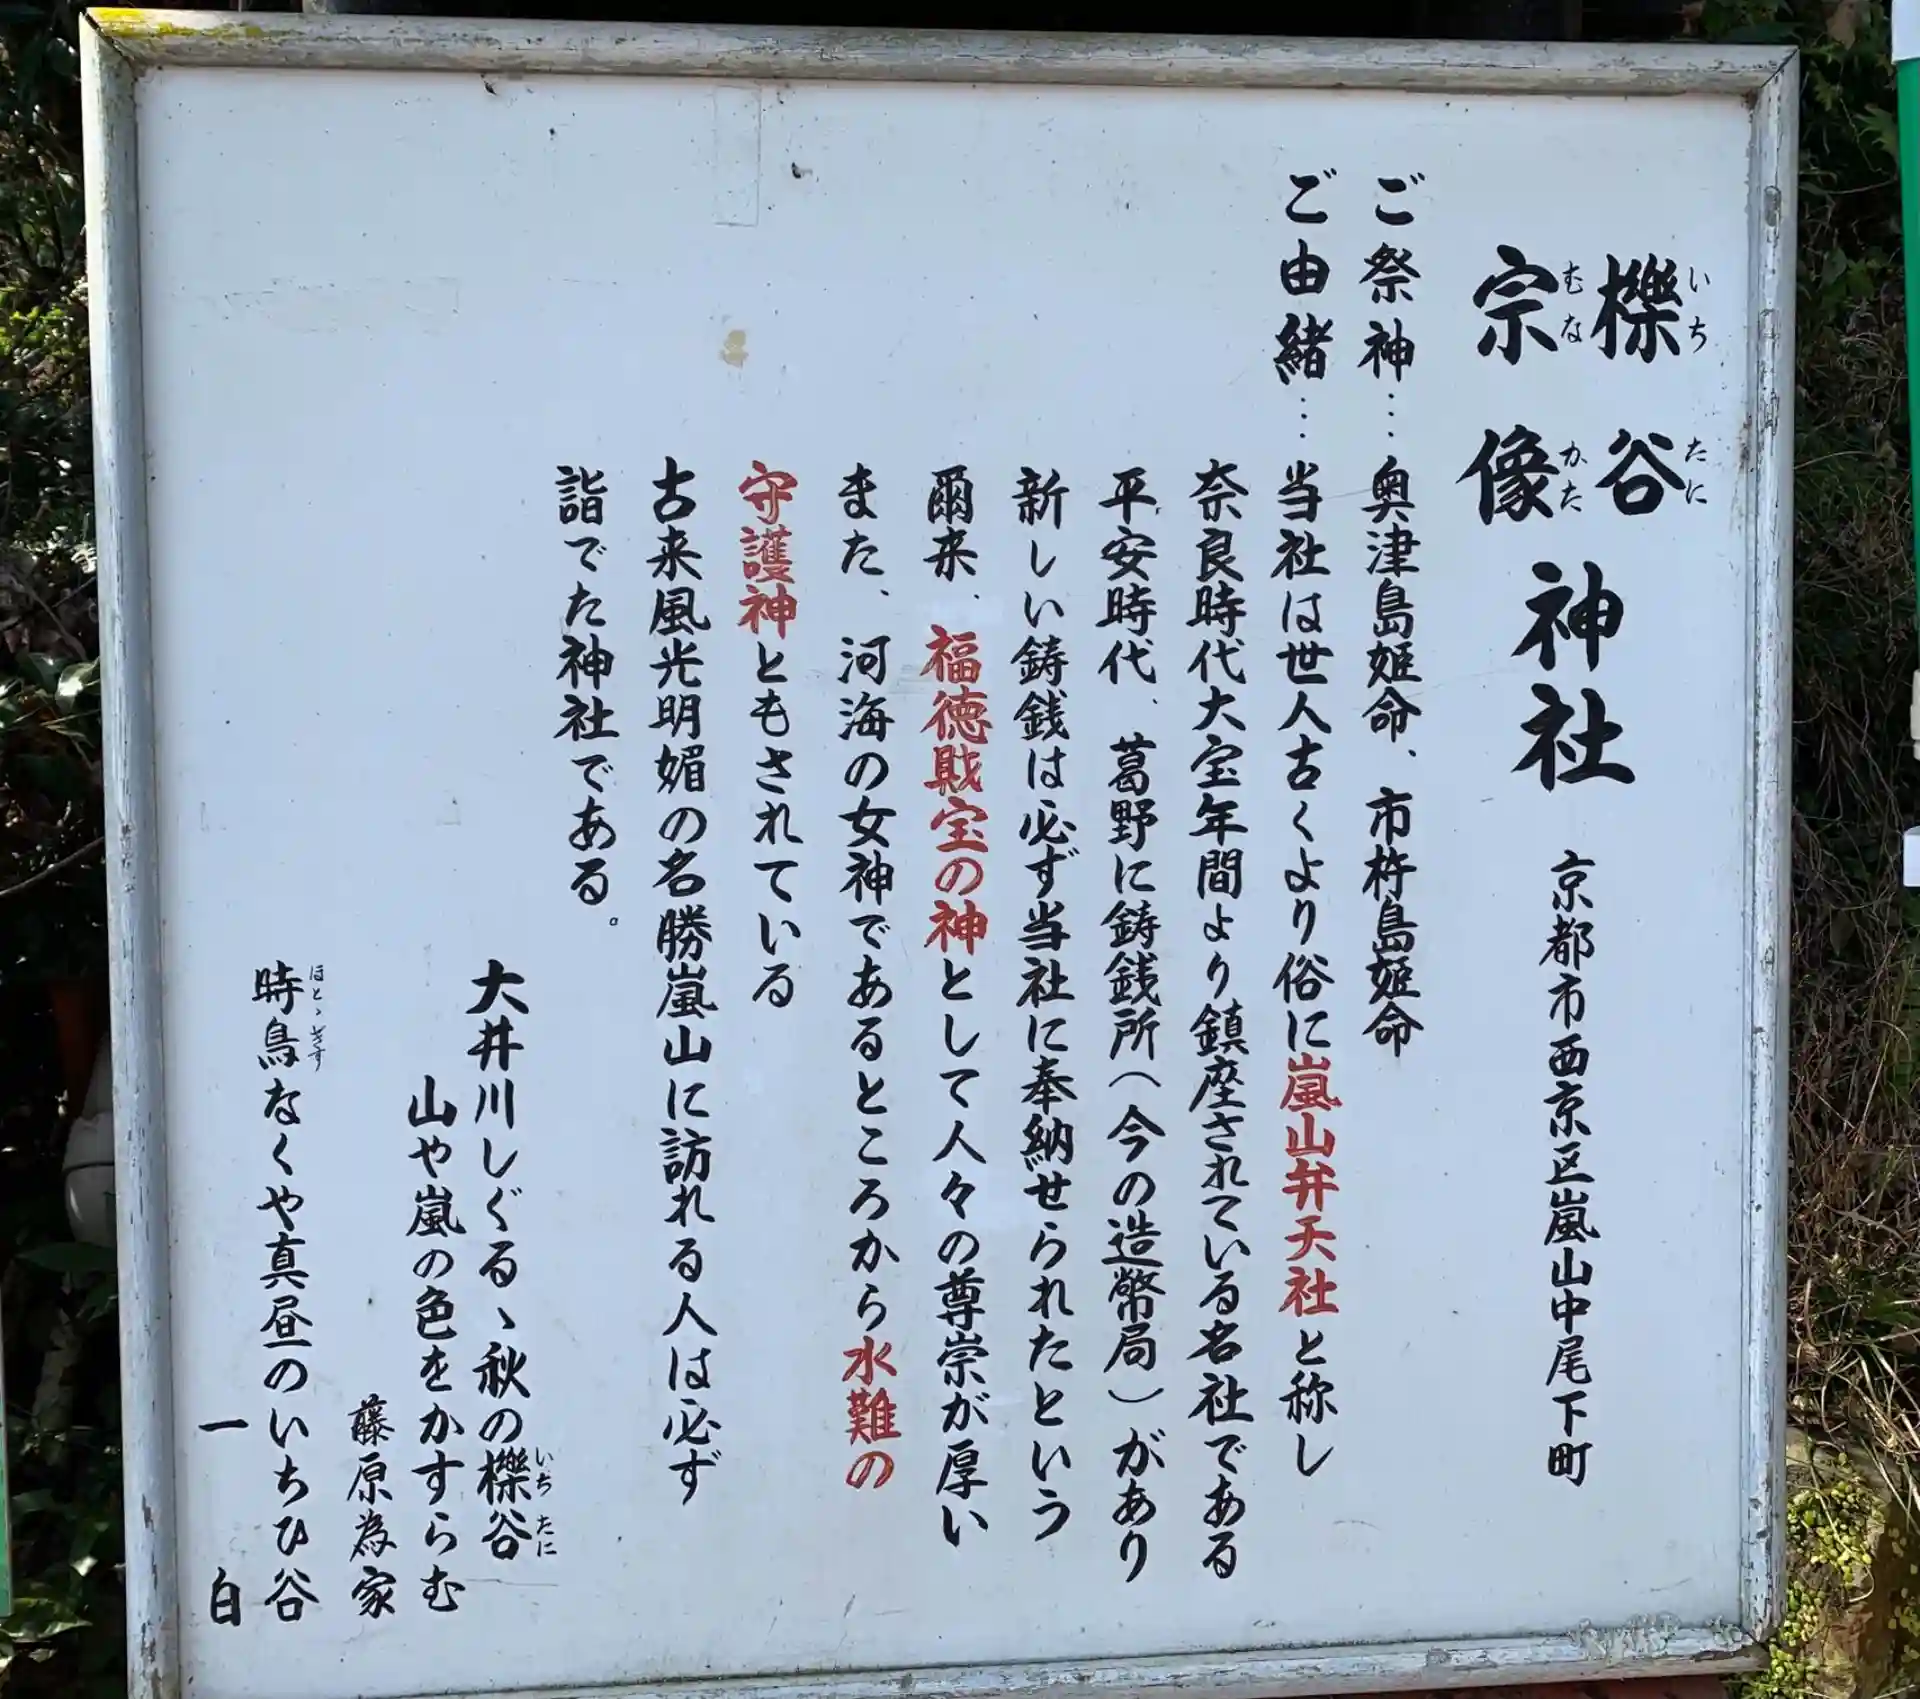 櫟谷 いちたに
宗像 むなかた
神社 京都市西京区嵐山中尾下町
ご祭神…奥津島姫命、市杵島姫命
ご由緒…当社は世人古くより俗に嵐山弁天社と称し
奈良時代大宝年間より鎮座されている名社である
平安時代、葛野に鋳銭所(今の造幣局)があり
新しい鋳銭は必ず当社に奉納せられたという
爾来、福徳財宝の神として人々の尊崇が厚い
また、河海の女神であるところから水難の
守護神ともされている
古来風光明媚の名勝嵐山に訪れる人は必ず
詣でた神社である。
大井川しぐるゝ秋の櫟谷 いちたに
山や嵐の色をかすらむ
藤原為家
時鳥なくや真昼のいちひ谷 ほとゝぎす
一白